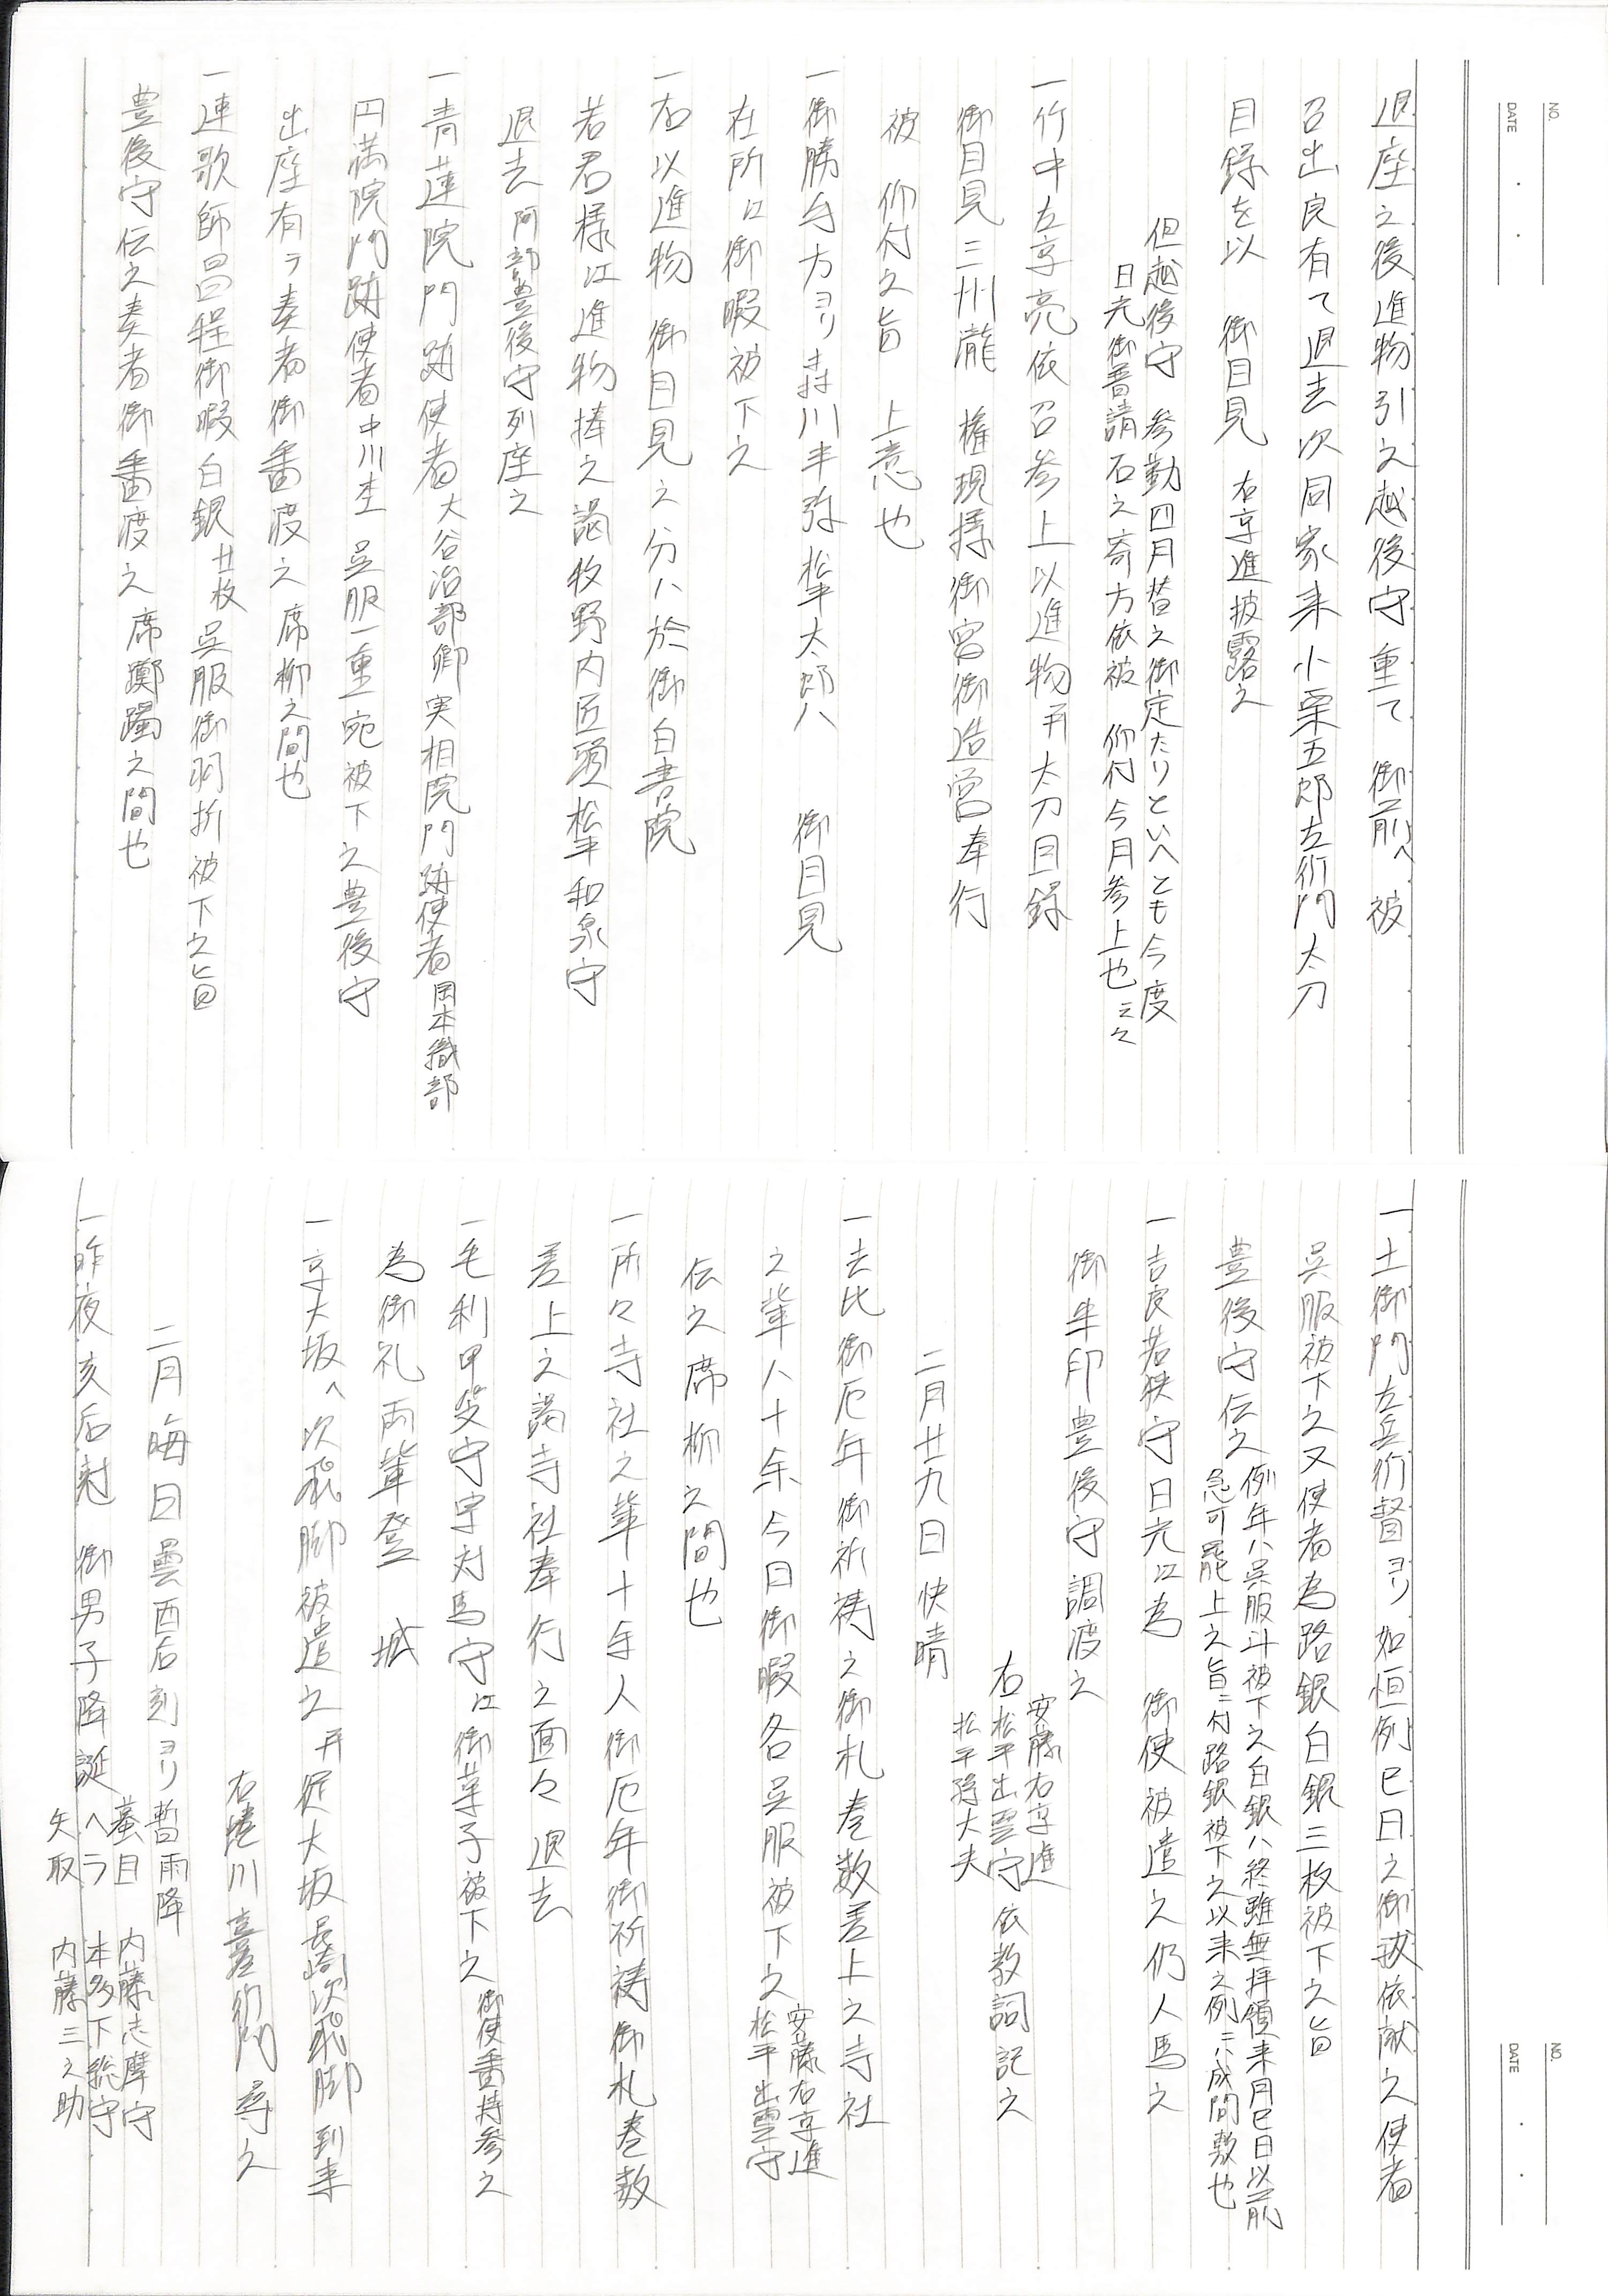 NO.
DATE
退座之後進物引之越後守重て　御前へ被
召出良有て退去次同家来小栗五郎左衛門太刀
目録を以　御目見　右京進披露之
但越後守　参勤四月替之御定たりといへとも今度
日光御普請石之寄方依被　仰付今月参上也云々
一竹中左京亮依召参上以進物并太刀目録
御目見三州瀧　権現様御宮御造営奉行
被　仰付之旨　上意也
一御勝手方ヨリ森川半弥松平太郎八　　御目見
在所江御暇被下之
一右以進物　御目見之分ハ於御白書院
若君様江進物捧之謁牧野内匠頭松平和泉守
退去　阿部豊後守列座之
一青蓮院門跡使者大谷治部卿実相院門跡使者岡本織部
円満院門跡使者中川杢　呉服一重宛被下之豊後守
出座有テ奏者御番渡之　席柳之間也
一連歌師昌程御暇白銀廿枚呉服御羽折被下之旨
豊後守伝之奏者御番渡之　席躑躅之間也
NO.
DATE
一土御門左兵衛督ヨリ如恒例巳日之御祓依献之使者
呉服被下之又使者為路銀白銀三枚被下之旨
豊後守伝之　例年ハ呉服斗被下之白銀ハ終雖無拝領来月巳日以前
急可罷上之旨ニ付路銀被下之以来之例ニハ成間敷也
一吉良若狭守日光江為　御使被遣之仍人馬之
御朱印豊後守調渡之
安藤右京進
右松平出雲守　依教詞記之
松平将大夫
二月廿九日　快晴
一去比御厄年　御祈祷之御札巻数差上之寺社
之輩人十余今日御暇各呉服被下之　安藤右京進
松平出雲守
伝之席柳之間也
一所々寺社之輩十余人御厄年御祈祷御札巻数
差上之謁寺社奉行之面々退去
一毛利甲斐守宗対馬守江御菓子被下之　御使番持参之
為御礼両輩登　城
一京大坂へ次飛脚被遣之　并従大坂長崎次飛脚到来
右蜷川喜左衛門尋之
二月晦日　曇酉后刻ヨリ暫雨降
一昨夜亥后刻　御男子降誕　蟇目　内藤志摩守
ヘラ　本多下総守
矢取　内藤三之助